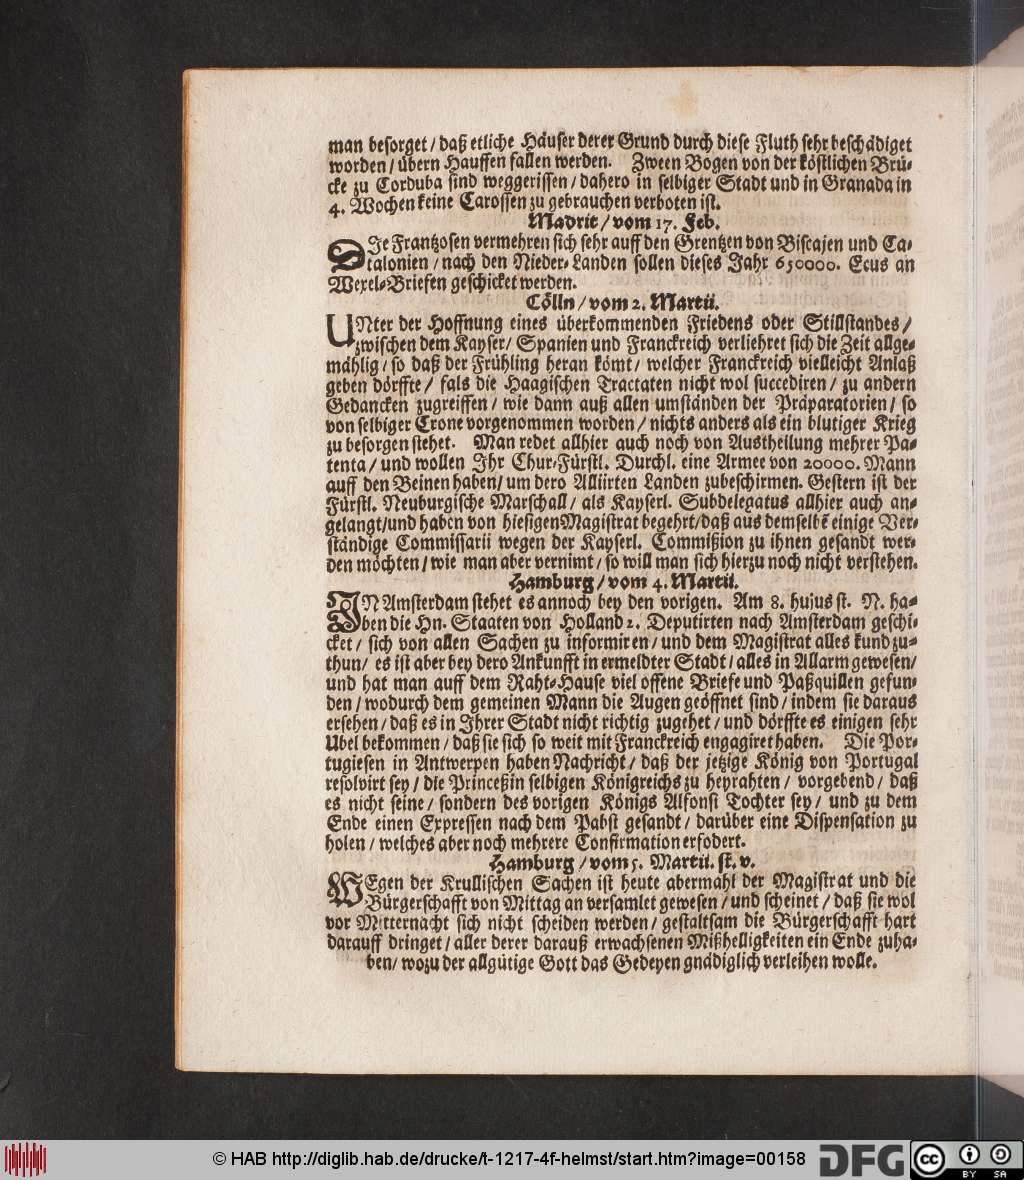 man besorget / daß etliche Häuser derer Grund durch diese Fluth sehr beschädiget
worden / übern Hauffen fallen werden. Zween Bogen von der köstlichen Brü-
cke zu Corduba sind weggerissen / dahero in selbiger Stadt und in Granada in
4. Wochen keine Carossen zu gebrauchen verboten ist.
Madrit / vom 17. Feb.
DIe Frantzosen vermehren sich sehr auff den Grentzen von Biscajen und Ca-
talonien / nach den Nieder-Landen sollen dieses Jahr 650000. Ecus an
Wexel-Briefen geschicket werden.
Cölln / vom 2. Martii.
UNter der Hoffnung eines überkommenden Friedens oder Stillstandes /
zwischen dem Kayser / Spanien und Franckreich verliehret sich die Zeit allge-
mählig / so daß der Frühling heran kömt / welcher Franckreich vielleicht Anlaß
geben dörffte / fals die Haagischen Tractaten nicht wol succediren / zu andern
Gedancken zugreiffen / wie dann auß allen umständen der Präparatorien / so
von selbiger Crone vorgenommen worden / nichts anders als ein blutiger Krieg
zu besorgen stehet. Man redet allhier auch noch von Austheilung mehrer Pa-
tenta / und wollen Ihr Chur-Fürstl. Durchl. eine Armee von 20000. Mann
auff den Beinen haben / um dero Alliirten Landen zubeschirmen. Gestern ist der
Fürstl. Neuburgische Marschall / als Kayserl. Subdelegatus allhier auch an-
gelangt / und haben von hiesigen Magistrat begehrt / daß aus demselbẽ einige Ver-
ständige Commissarii wegen der Kayserl. Commißion zu ihnen gesandt wer-
den möchten / wie man aber vernimt / so will man sich hierzu noch nicht verstehen.
Hamburg / vom 4. Martii.
IN Amsterdam stehet es annoch bey den vorigen. Am 8. hujus st. N. ha-
ben die Hn. Staaten von Holland 2. Deputirten nach Amsterdam geschi-
cket / sich von allen Sachen zu informiren / und dem Magistrat alles kund zu-
thun / es ist aber bey dero Ankunfft in ermeldter Stadt / alles in Allarm gewesen /
und hat man auff dem Raht-Hause viel offene Briefe und Paßquillen gefun-
den / wodurch dem gemeinen Mann die Augen geöffnet sind / indem sie daraus
ersehen / daß es in Ihrer Stadt nicht richtig zugehet / und dörffte es einigen sehr
Übel bekommen / daß sie sich so weit mit Franckreich engagiret haben. Die Por-
tugiesen in Antwerpen haben Nachricht / daß der jetzige König von Portugal
resolvirt sey / die Princeßin selbigen Königreichs zu heyrahten / vorgebend / daß
es nicht seine / sondern des vorigen Königs Alfonsi Tochter sey / und zu dem
Ende einen Expressen nach dem Pabst gesandt / darüber eine Dispensation zu
holen / welches aber noch mehrere Confirmation erfodert.
Hamburg / vom 5. Martii. st. v.
WEgen der Krullischen Sachen ist heute abermahl der Magistrat und die
Bürgerschafft von Mittag an versamlet gewesen / und scheinet / daß sie wol
vor Mitternacht sich nicht scheiden werden / gestaltsam die Bürgerschafft hart
darauff dringet / aller derer darauß erwachsenen Mißhelligkeiten ein Ende zuha-
ben / wozu der allgütige Gott das Gedeyen gnädiglich verleihen wolle.
© HAB http://diglib.hab.de/drucke/t-1217-4f-helmst/start.htm?image=00158
DFG
cc BY SA